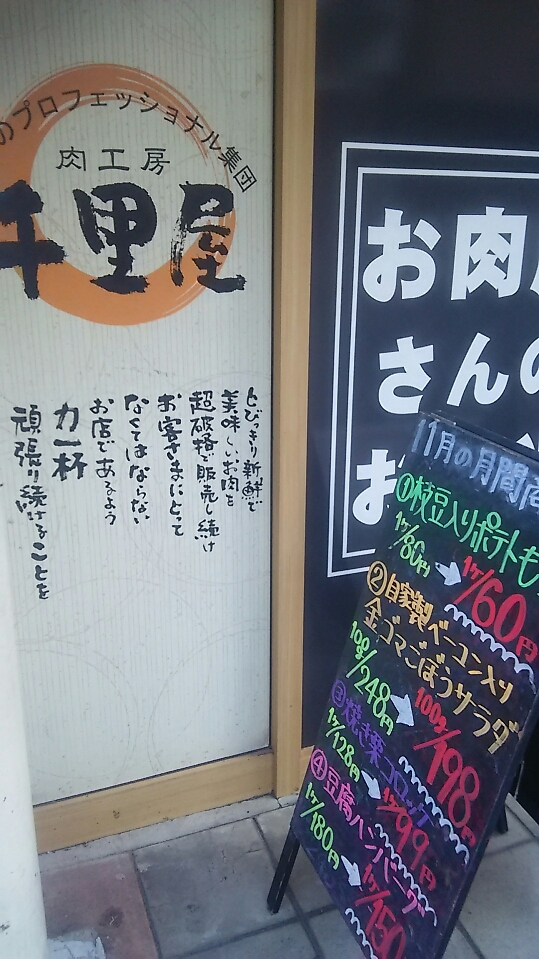 のプロフェッショナル集団
肉工房
千里屋
とびっきり新鮮で
美味しいお肉を
超破格で販売し続け
お客さまにとって
なくてはならない
お店であるよう
力一杯
頑張り続けることを
お肉
さんの
お
11月の月間商
①枝豆入りポテトも
1ケ/80円 1ケ/60円
②自家製ベーコン入り
金ゴマごぼうサラダ
100g/248円 100g/198円
③焼き栗コロッケ
1ケ/128円 1ケ/99円
④豆腐ハンバーグ
1ケ/180円 1ケ/150